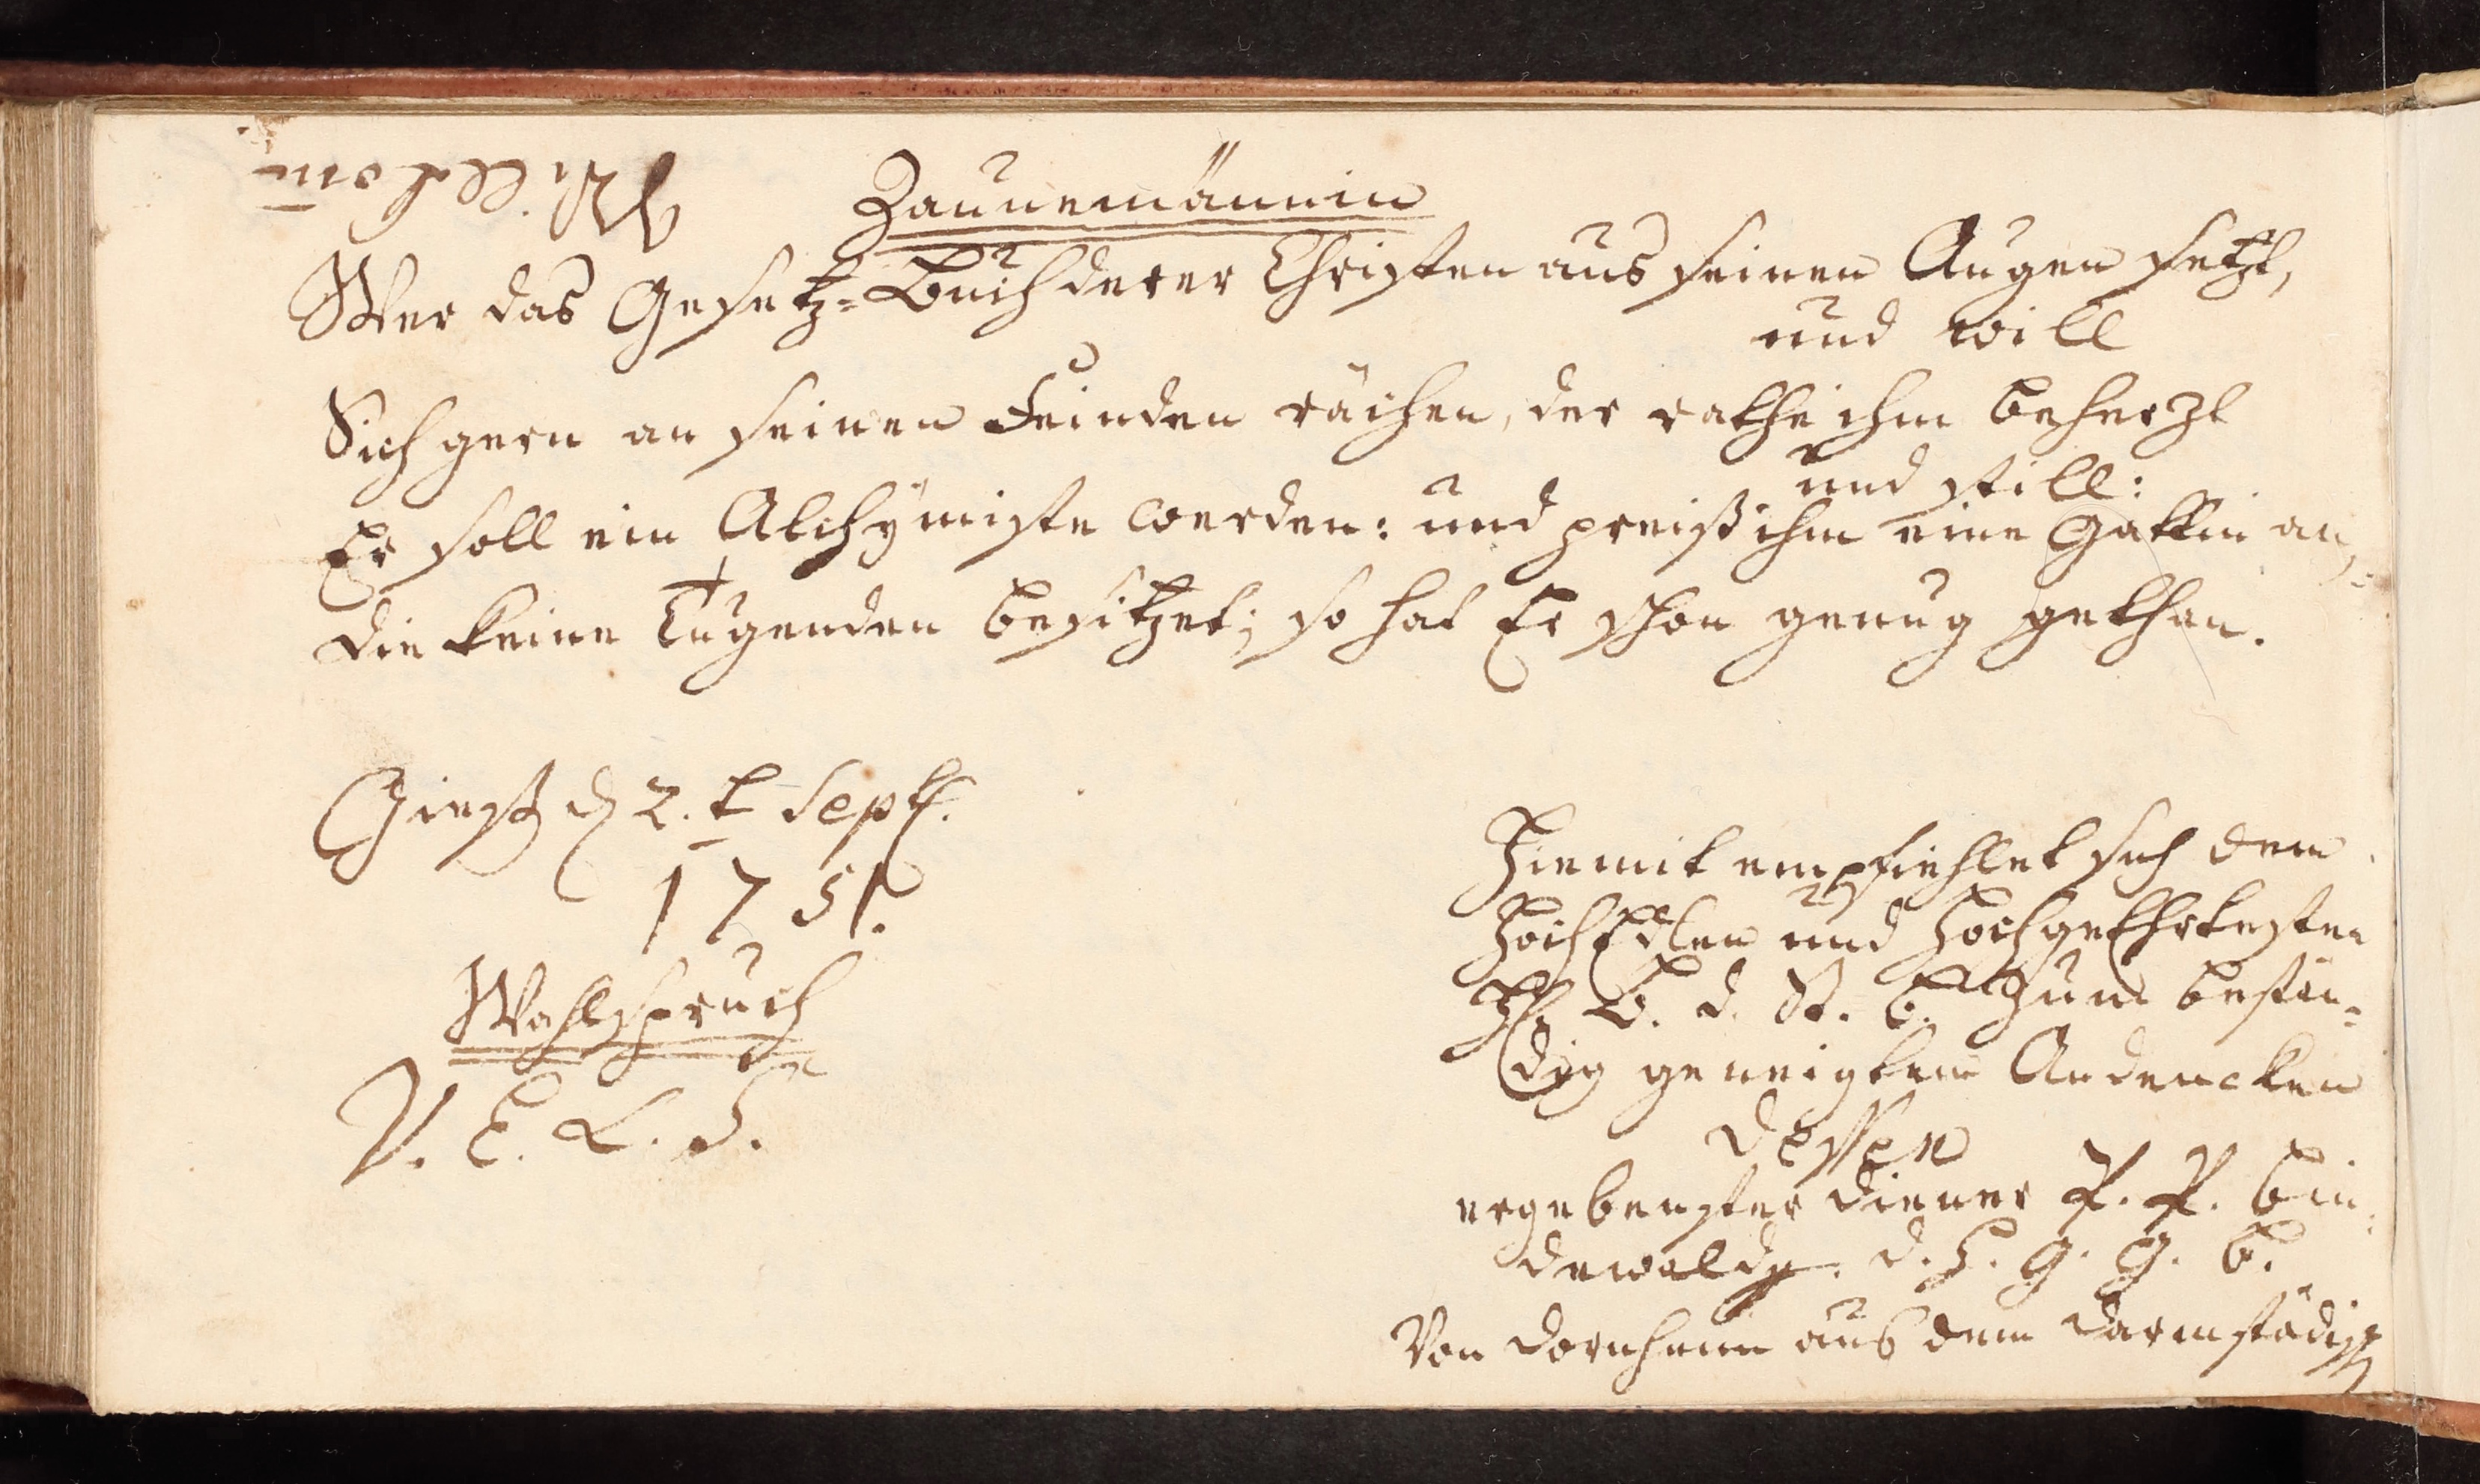 Zaunemännin
Wer das Gesetz=Buch derer Christen aus seinen Augen setzt,
und will
Sich gern an seinen Feinden rächen, der rathe ihm beherzt
und still:
Er soll ein Alchÿmiste werden: und preiß ihm eine Gattin an,
die keine Tugenden besitzet; so hat Er schon genug gethan.
Gieß d 2. t Sept.
1751.
Wahlspruch
V. E. L. S.
Hiemit empfiehlet sich dem
HochEdlen und Hochgeehrtesten
H. B. d. R. C. zum bestän=
dig geneigtem Andencken
Dessen
ergebenster Diener P. P. Bin=
dewald. d. H. G. G. B.
Von Dornheim aus dem Darmstädisch